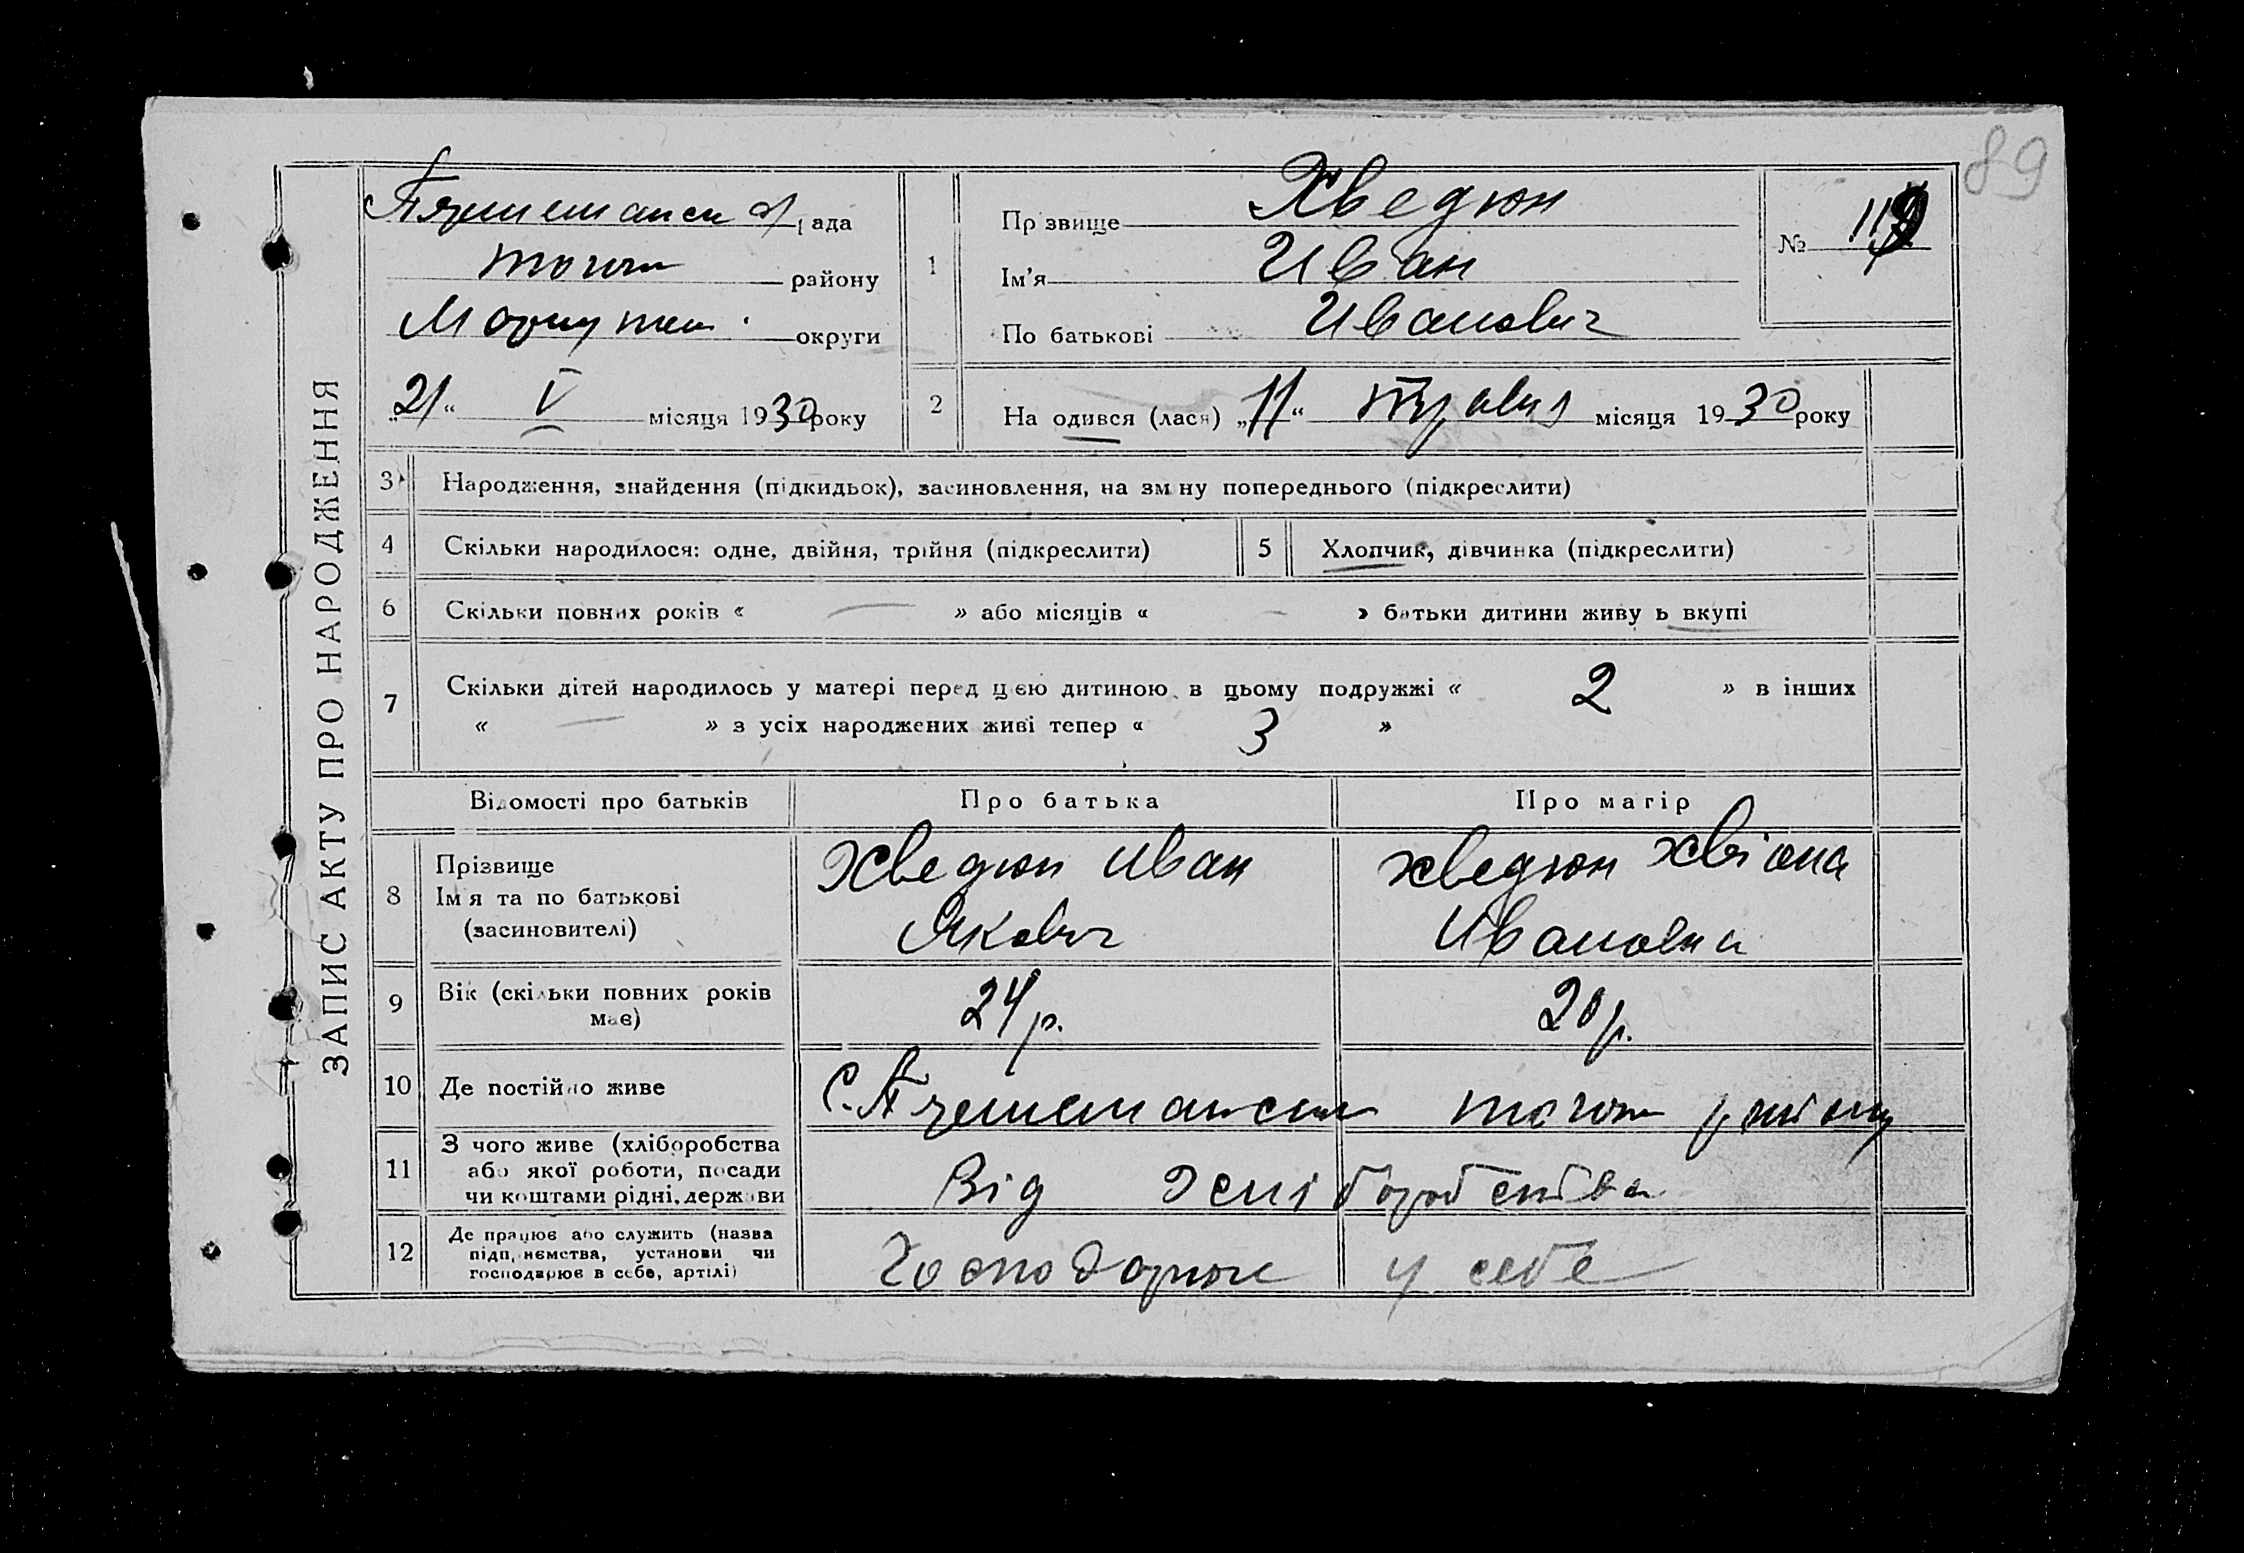 89
ЗАПИС АКТУ ПРО НАРОДЖЕННЯ
рада
району
округи
„21“ V місяця 1930 року
1
Прізвище Хведюн
Ім'я Иван
По батькові Иванович
№
2
Народився (лася) „11“ травня місяця 1930 року
3 Народження, знайдення (підкидьок), засиновлення, на зміну попереднього (підкреслити)
4 Скільки народилося: одне, двійня, трійня (підкреслити)
5 Хлопчик, дівчинка (підкреслити)
6 Скільки повних років « — » або місяців « — » батьки дитини живуть вкупі
7 Скільки дітей народилось у матері перед цією дитиною в цьому подружжі « 2 » в інших
« — » з усіх народжених живі тепер « 3 »
Відомості про батьків Про батька Про матір
8 Прізвище Ім'я та по батькові (засиновителі)
Хведюн Иван
Якович
Хведюн
Ивановна
9 Вік (скільки повних років має)
24 р.
20 р.
10 Де постійно живе
С. району
11 З чого живе (хліборобства
або якої роботи, посади
чи коштами рідні, держави
Від хліборобства
12 Де працює або служить (назва
підприємства, установи чи
господарює в себе, артілі)
у себе